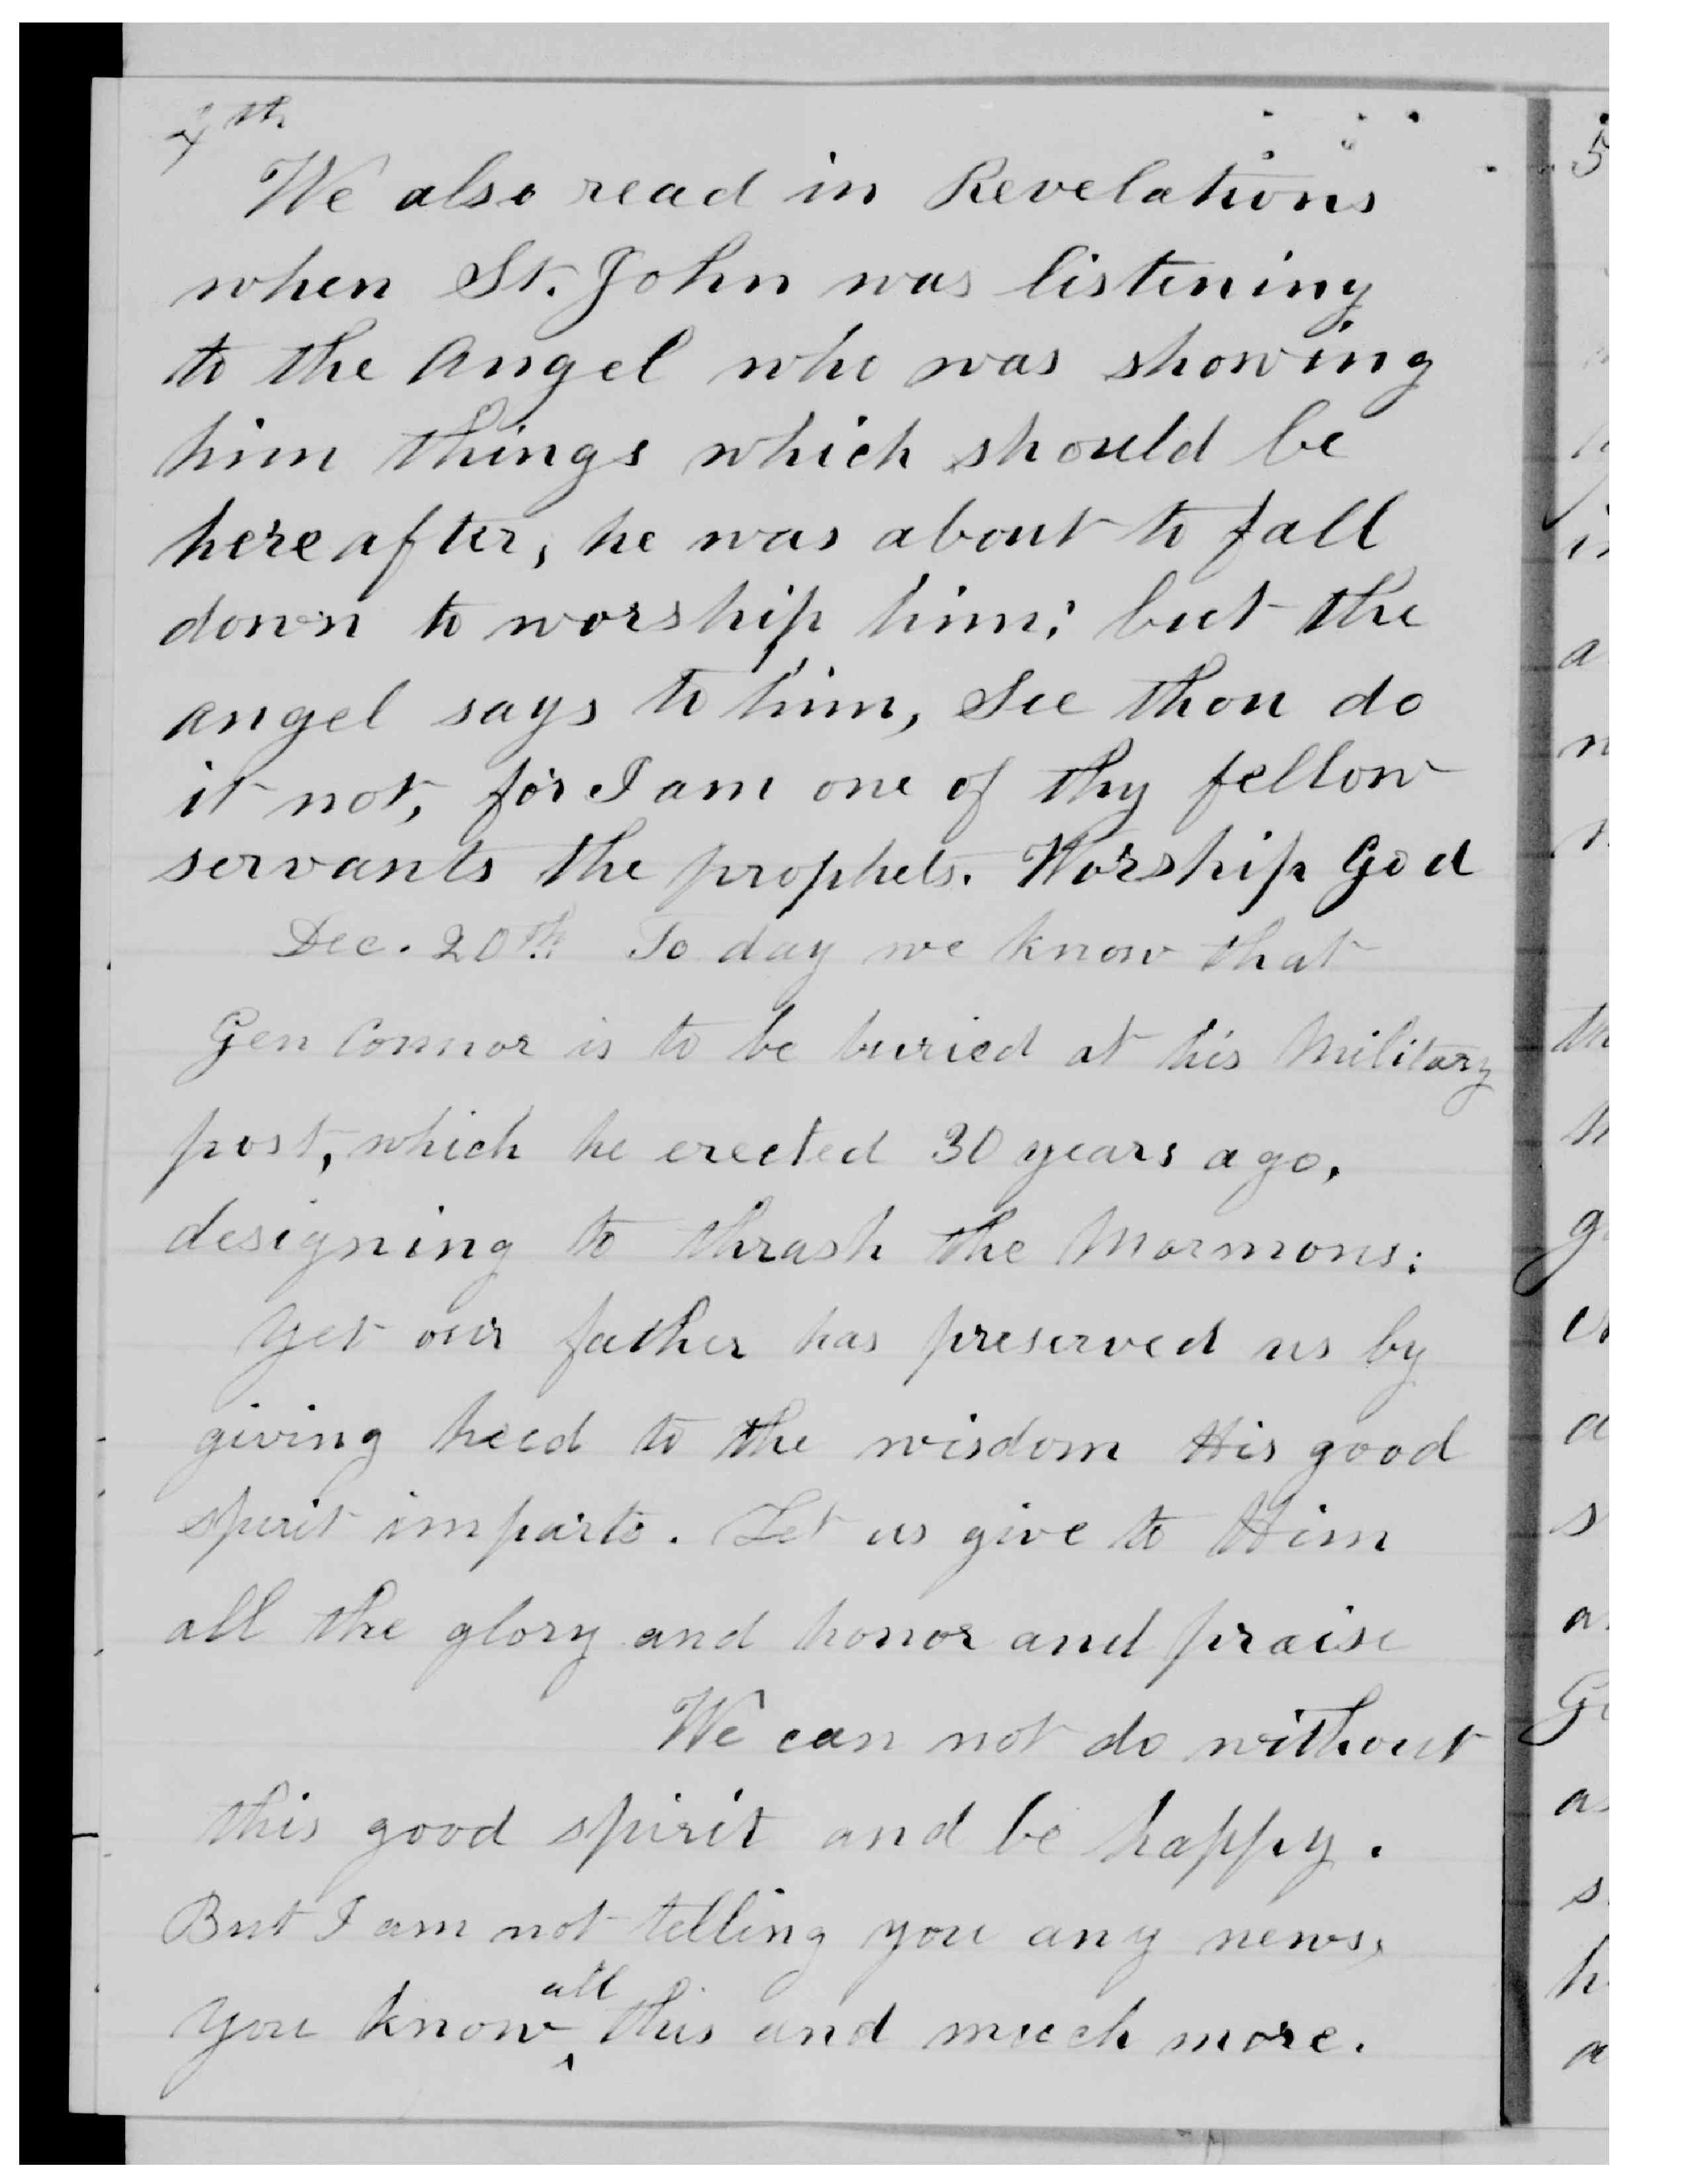 4th
We also read in Revelations
when St. John was listening
to the Angel who was showing
him things which should be
hereafter, he was about to fall
down to worship him; but the
angel says to him, See thou do
it not, for I am one of thy fellow
servants the prophets. Worship God
Dec. 20th To day we know that
Gen Connor is to be buried at his Military
post, which he erected 30 years ago,
designing to thrash the Mormons;
Yet our father has preserved us by
giving heed to the wisdom His good
spirit imparts. Let us give to Him
all the glory and honor and praise
We can not do without
this good spirit and be happy.
But I am not telling you any news,
all
you know this and much more.